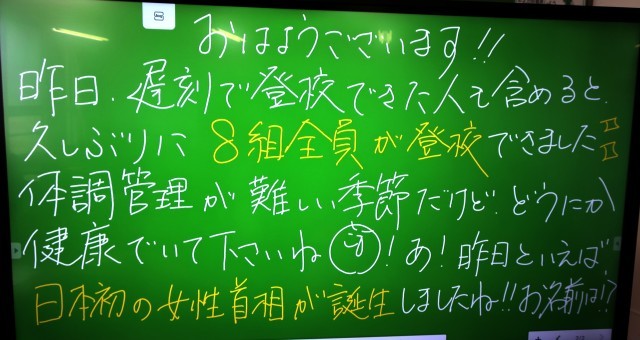 おはようございます!!
昨日、遅刻で登校できた人も含めると、
久しぶりに 8組全員が登校できました!!
体調管理が難しい季節だけど、どうにか
健康でいて下さいね!あ!昨日といえば
日本初の女性首相が誕生しましたね!!お名前は!?